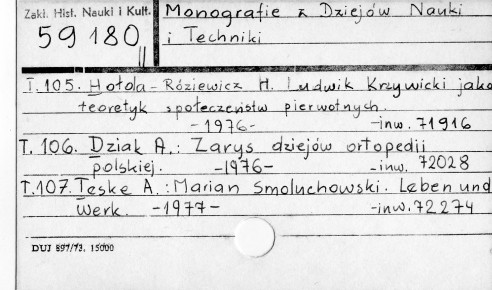 Zakł. Hist. Nauki i Kult.
59180
Monografie z Dziejów Nauki
i Techniki
T.105. Hołola-Róziewicz H. Ludwik Krzywicki jako
teoretyk społeczeństw pierwotnych.
-1976- -inw. 71916
T.106. Dziak A.: Zarys dziejów ortopedii
polskiej. -1976- -inw. 72028
T.107. Teske A.: Marian Smoluchowski. Leben und
Werk. -1977- -inw. 72274
DUJ 897/73. 15000